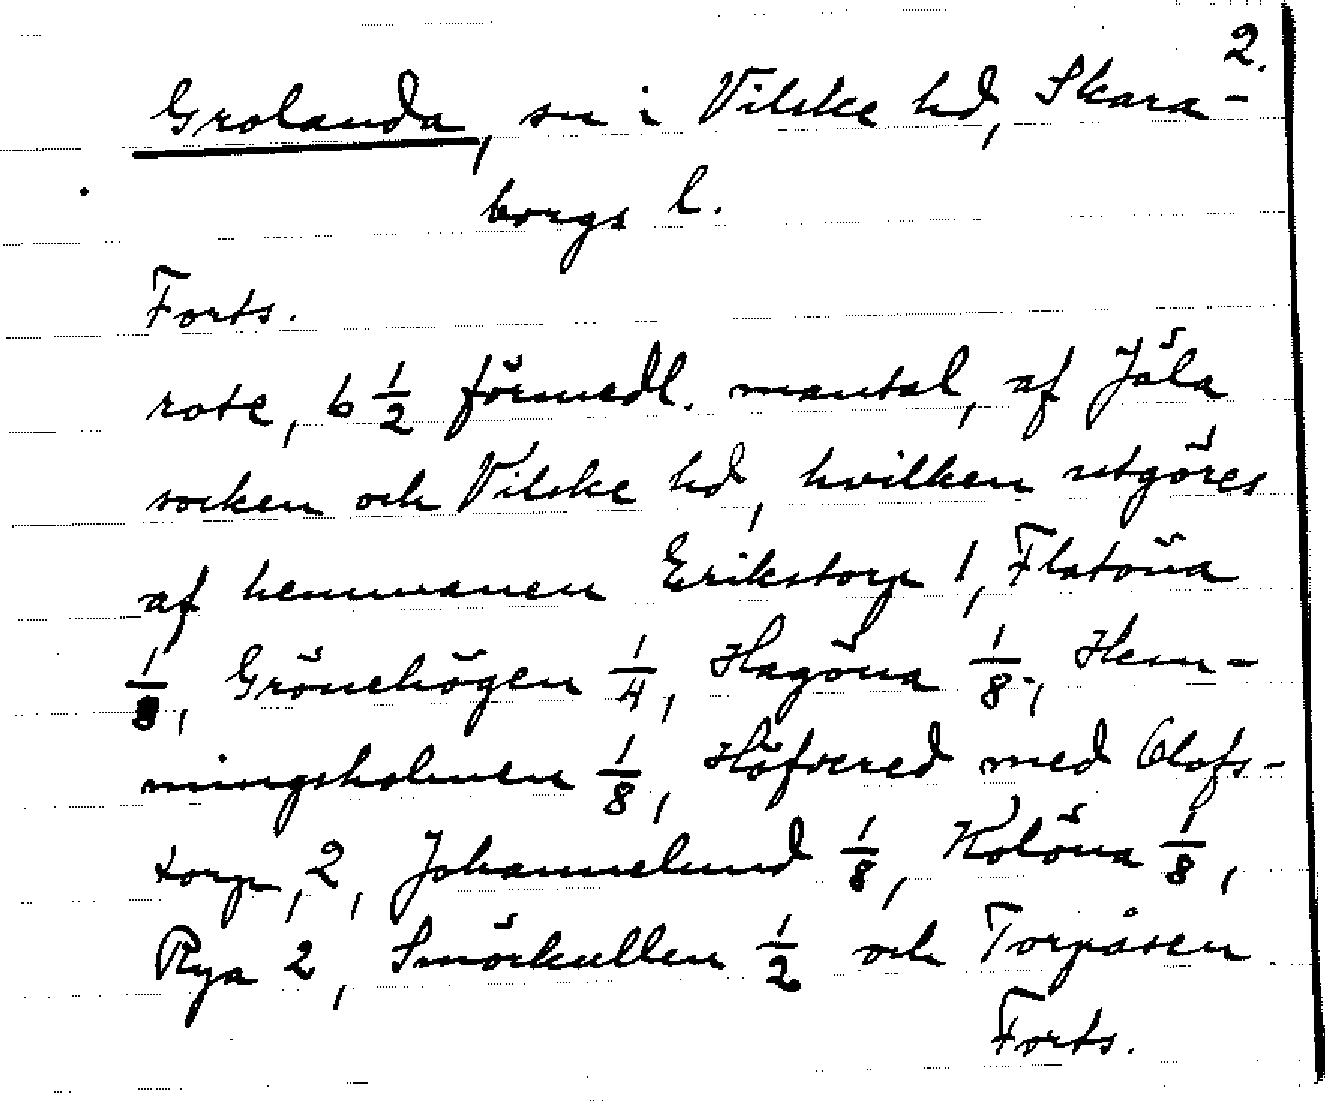 2.
Grolanda, sn i Vilske hd, Skara-
borgs l.
Forts.
rote, 6 1/2 förmedl. mantal, af Jäla
socken och Vilske hd, hvilken utgöres
af hemmanen Erikstorp 1, Flatöna
1/8, Grönehögen 1/4, Hagöna 1/8, Hem-
mingsholmen 1/8, Höfvered med Olofs-
torp, 2, Johannelund 1/8, Kolöna 1/8,
Rya 2, Smörkullen 1/2 och Torpåsen
Forts.